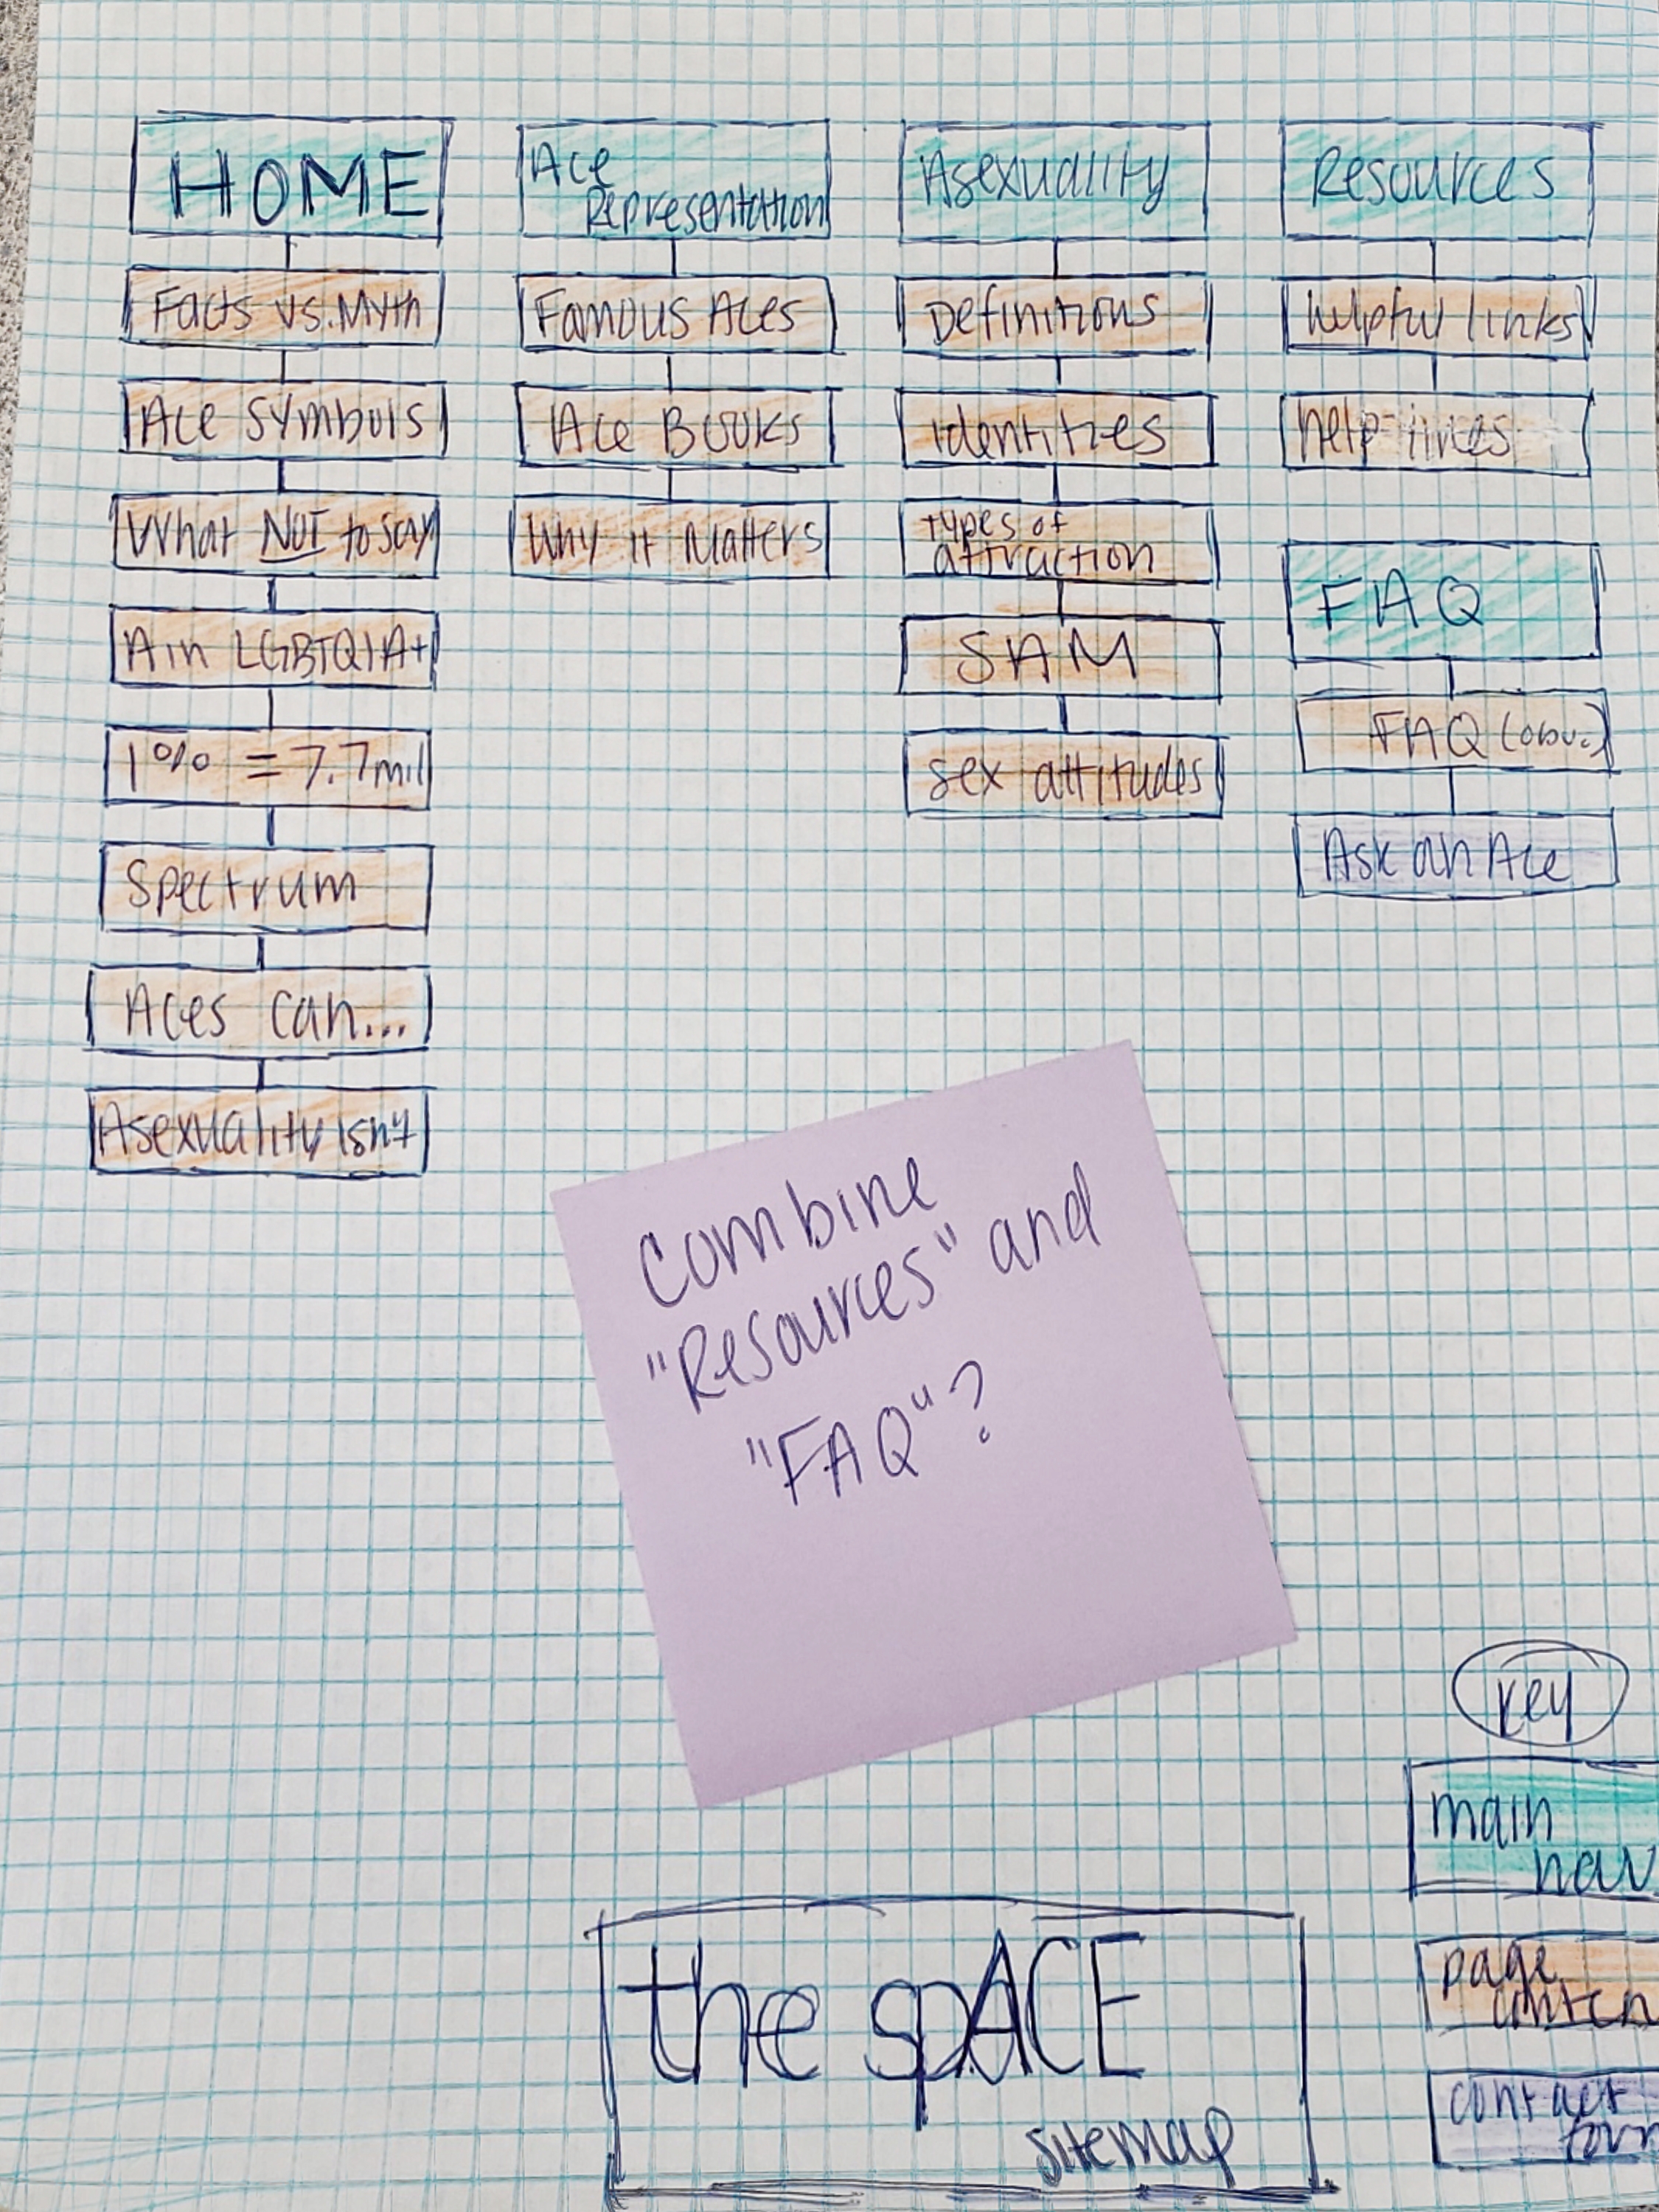 HOME
Facts vs. Myth
Ace Symbols
What NOT to say
A in LGBTQIA+
1% = 7.7mil
Spectrum
Aces can...
Asexuality isn't
Ace
Representation
Famous Aces
Ace Books
Why it Matters
Asexuality
Definitions
identities
types of
attraction
SAM
sex attitudes
Resources
helpful links
help lines
FAQ
FAQ (obv.)
Ask an Ace
Combine
"Resources" and
"FAQ"?
key
main
nav
page
conten
contact
form
the spACE
sitemap